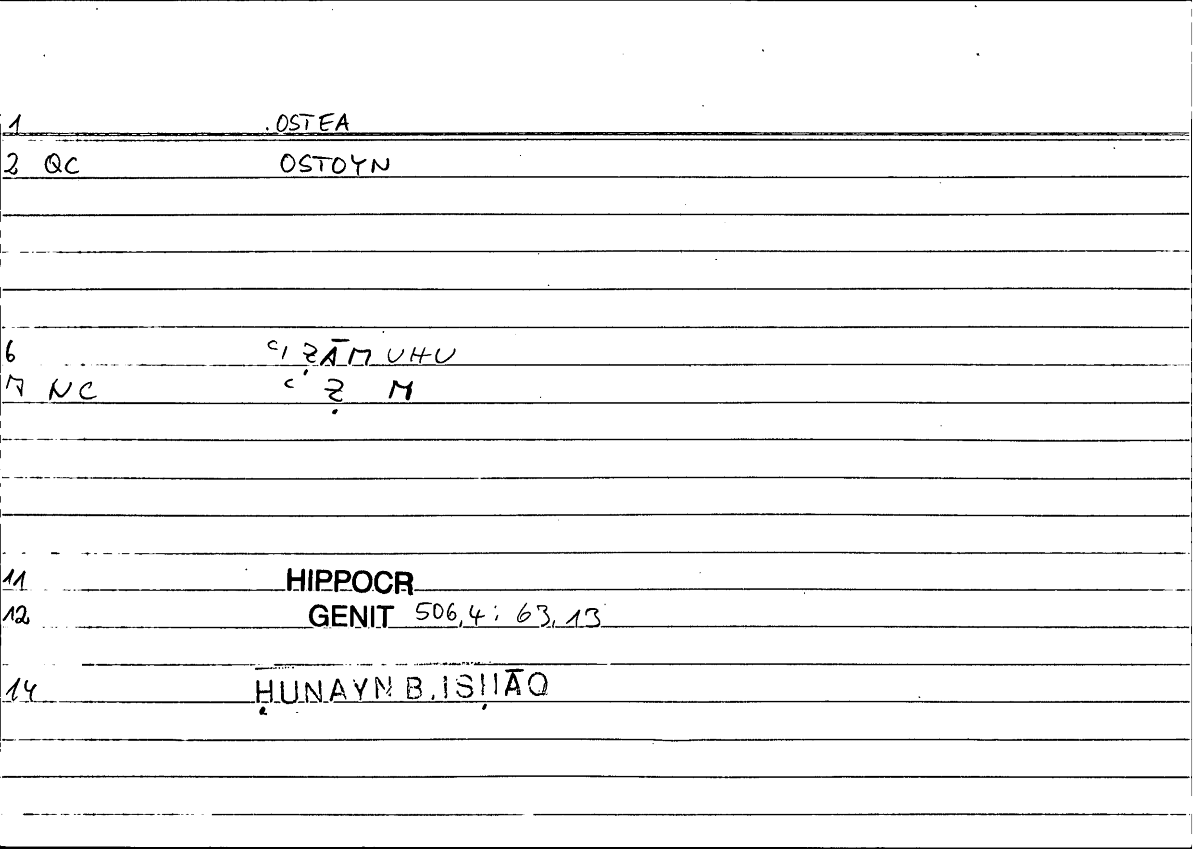 1 OSTEA
2 QC OSTOYN
6 ʿIẒĀMUHU
7 NC ʿ Ẓ M
11 HIPPOCR
12 GENIT 506,4; 63,13
14 ḤUNAYN B. ISḤĀQ